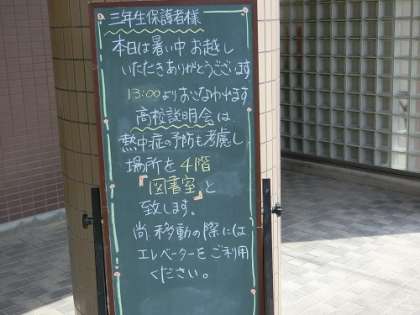 三年生保護者様
本日は暑い中お越し
いただきありがとうございます
13:00よりおこなわれます
高校説明会は
熱中症の予防も考慮し
場所を4階
『図書室』と
致します。
尚移動の際には
エレベーターをご利用
ください。